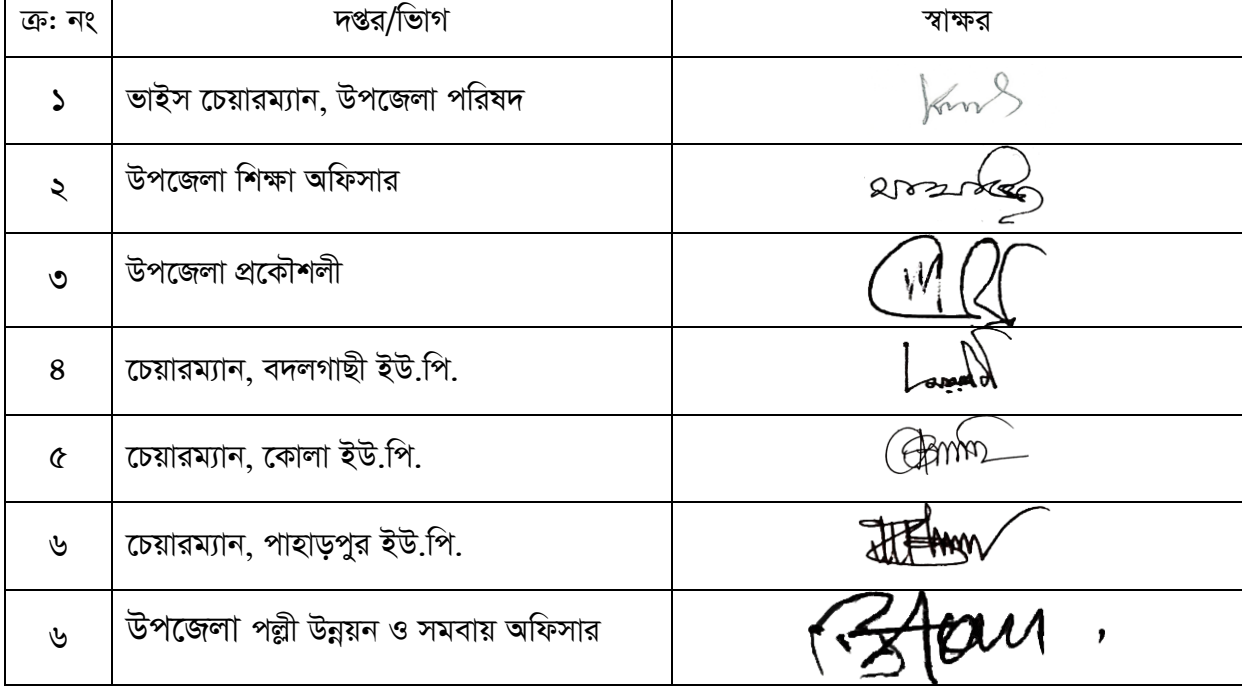 ক্র: নং দপ্তর/ভিাগ স্বাক্ষর
১ ভাইস চেয়ারম্যান, উপজেলা পরিষদ
২ উপজেলা শিক্ষা অফিসার
৩ উপজেলা প্রকৌশলী
৪ চেয়ারম্যান, বদলগাছী ইউ.পি.
৫ চেয়ারম্যান, কোলা ইউ.পি.
৬ চেয়ারম্যান, পাহাড়পুর ইউ.পি.
৬ উপজেলা পল্লী উন্নয়ন ও সমবায় অফিসার